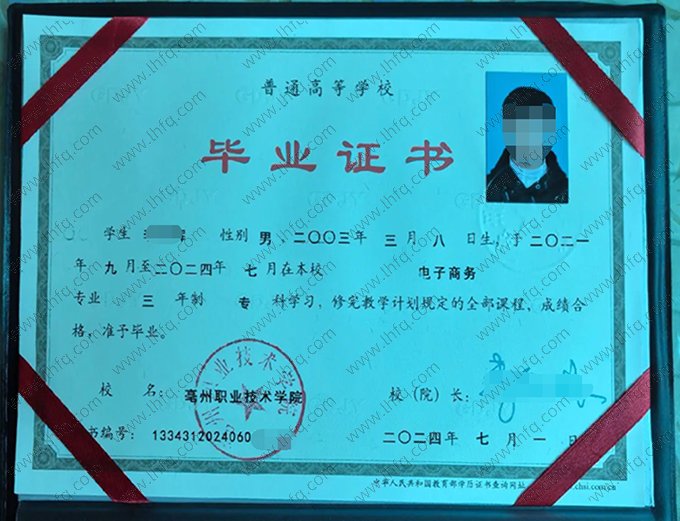 普通高等学校
毕业证书
学生 性别 男，二〇〇三年 三 月 八 日生，于 二〇二一
年 九 月至 二〇二四年 七 月在本校 电子商务
专业 三 年制 专 科学习，修完教学计划规定的全部课程，成绩合
格，准予毕业。
校 名： 亳州职业技术学院 校（院）长：
书编号： 1334312024060 二〇二四年 七 月 一 日
中华人民共和国教育部学历证书查询网址
www.lhfq.com